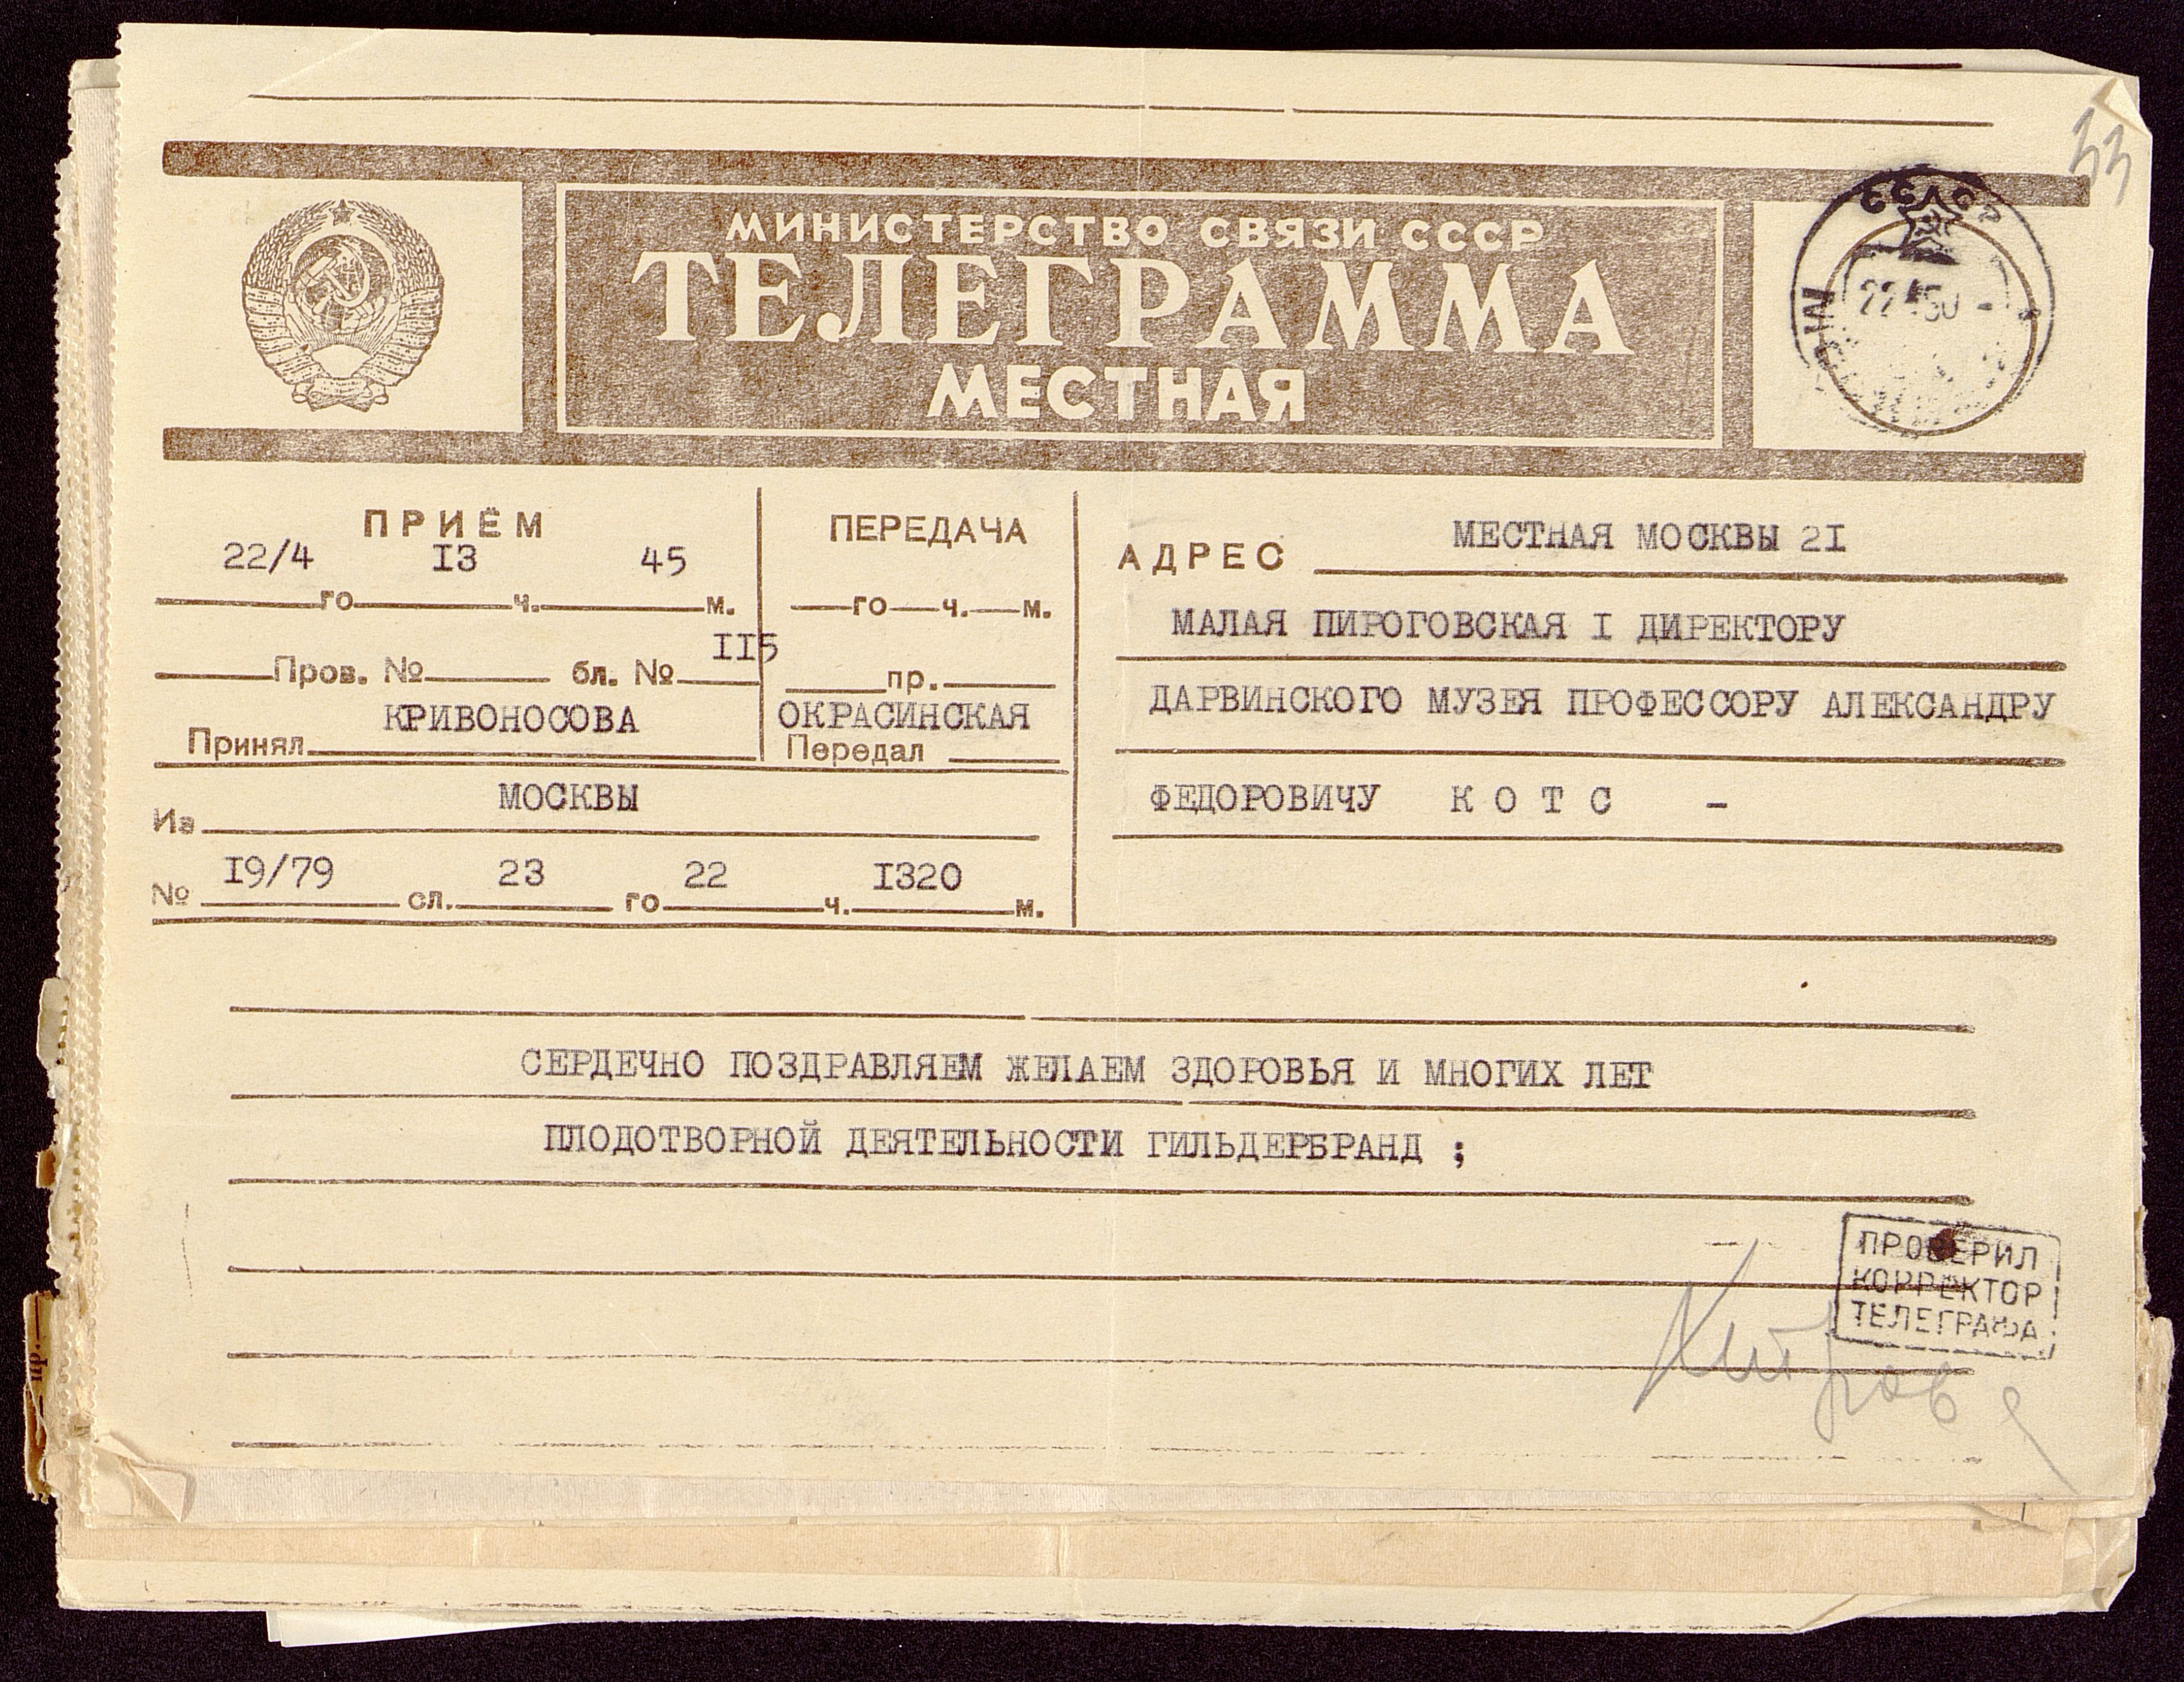 33
МИНИСТЕРСТВО СВЯЗИ СССР
ТЕЛЕГРАММА
МЕСТНАЯ
ПРИЁМ
22/4 I3 45
го ч. м.
II5
Пров. № бл. №
КРИВОНОСОВА
Принял
ПЕРЕДАЧА
го ч. м.
пр.
ОКРАСИНСКАЯ
Передал
МОСКВЫ
Из
I9/79 23 22 I320
№ сл. го ч. м.
МЕСТНАЯ МОСКВЫ 2I
АДРЕС
МАЛАЯ ПИРОГОВСКАЯ I ДИРЕКТОРУ
ДАРВИНСКОГО МУЗЕЯ ПРОФЕССОРУ АЛЕКСАНДРУ
ФЕДОРОВИЧУ К О Т С –
СЕРДЕЧНО ПОЗДРАВЛЯЕМ ЖЕЛАЕМ ЗДОРОВЬЯ И МНОГИХ ЛЕТ
ПЛОДОТВОРНОЙ ДЕЯТЕЛЬНОСТИ ГИЛЬДЕРБРАНД ;
ПРОВЕРИЛ
КОРРЕКТОР
ТЕЛЕГРАФА
пр.